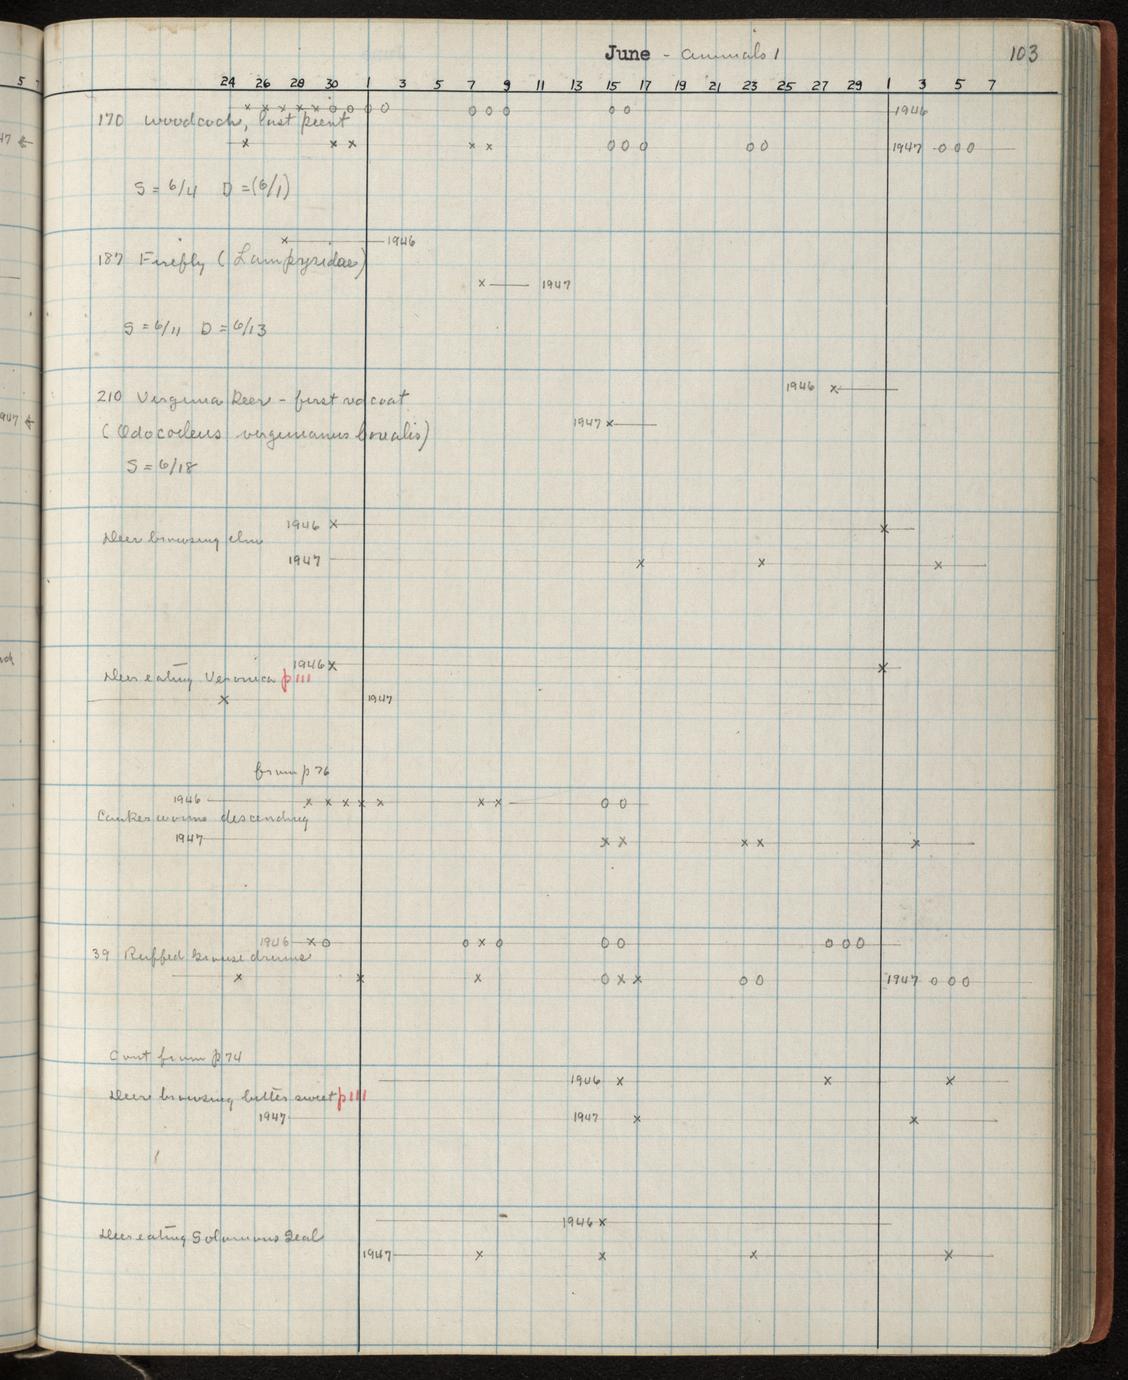 June - Animals 1
103
5 7
24 26 28 30 1 3 5 7 9 11 13 15 17 19 21 23 25 27 29 1 3 5 7
x x x x x o o o o o o o o o 1946
170 Woodcock, last peent
x x x x x o o o o o 1947 o o o
47 ←
S = 6/4 D = (6/1)
x 1946
187 Firefly (Lampyridae)
x 1947
S = 6/11 D = 6/13
1946 x
210 Virginia Deer - first red coat
1947 x
947 ←
(Odocoileus virginianus borealis)
S = 6/18
1946 x x
Deer browsing elm
1947 x x x
1946 x x
Deer eating Veronica p 111
x 1947
from p 76
1946 x x x x x x x o o
Canker worms descending
1947 x x x x x
1946 x o o x o o o o o o
39 Ruffed Grouse drums
x x x o x x o o 1947 o o o
Cont from p 74
1946 x x x
Deer browsing bitter sweet p 111
1947 1947 x x
1946 x
Deer eating Solomons Seal
1947 x x x x